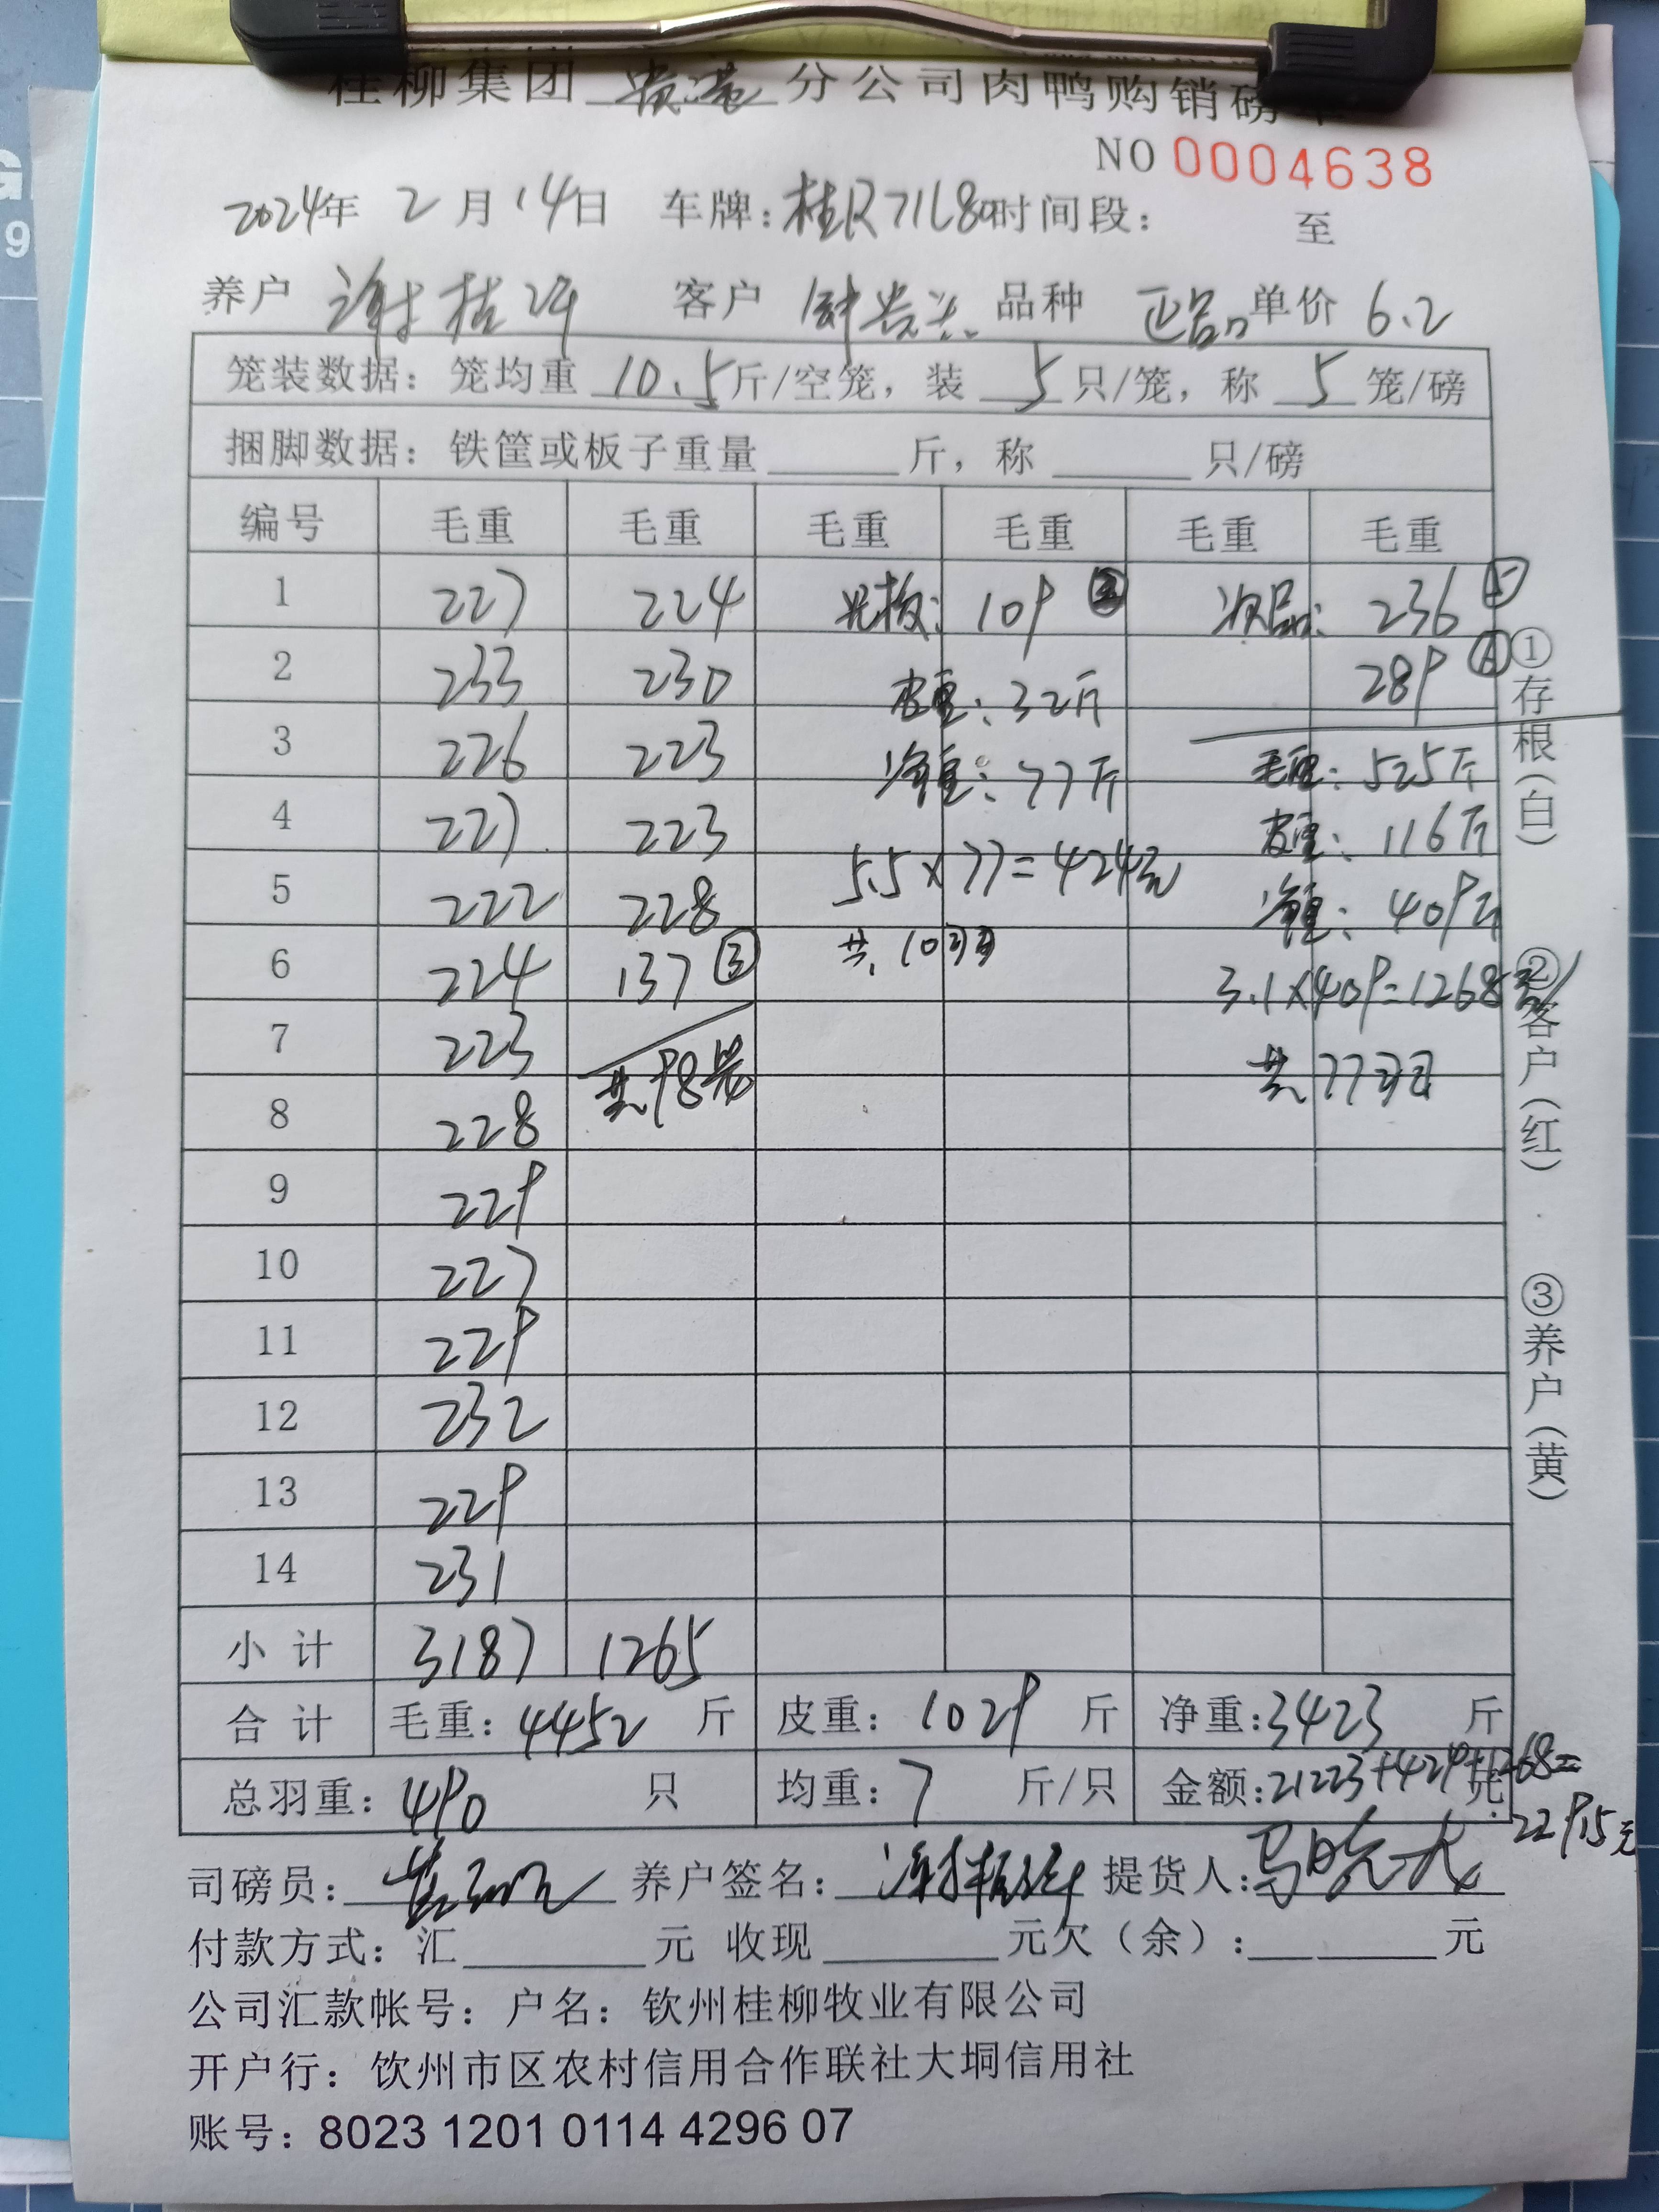 桂柳集团 贵港 分公司肉鸭购销磅单
NO 0004638
2024年 2月14日 车牌：桂R71L80 时间段： 至
养户 谢桂 客户 钟 品种 正品 单价 6.2
笼装数据：笼均重 10.5 斤/空笼，装 5 只/笼，称 5 笼/磅
捆脚数据：铁筐或板子重量 斤，称 只/磅
编号 毛重 毛重 毛重 毛重 毛重 毛重
1 227 224 光板： 109 次品： 236 ⑤
2 233 230 皮重：32斤 289 ⑥
3 226 223 净重：77斤 毛重：525斤
4 227 223 皮重：116斤
5 222 228 5.5×77=424元 净重：409斤
6 224 137 ③ 共10羽 3.1×409=1268元
7 223 共98笼 共77羽
8 228
9 229
10 227
11 229
12 232
13 229
14 231
小计 3187 1265
合计 毛重：4452 斤 皮重：1029 斤 净重：3423 斤
总羽重：490 只 均重：7 斤/只 金额：21223+424+1268= 元
22915元
司磅员： 养户签名： 提货人：马晓
付款方式：汇 元 收现 元欠（余）： 元
公司汇款帐号：户名：钦州桂柳牧业有限公司
开户行：饮州市区农村信用合作联社大垌信用社
账号：8023 1201 0114 4296 07
①存根（白） ②客户（红） ③养户（黄）